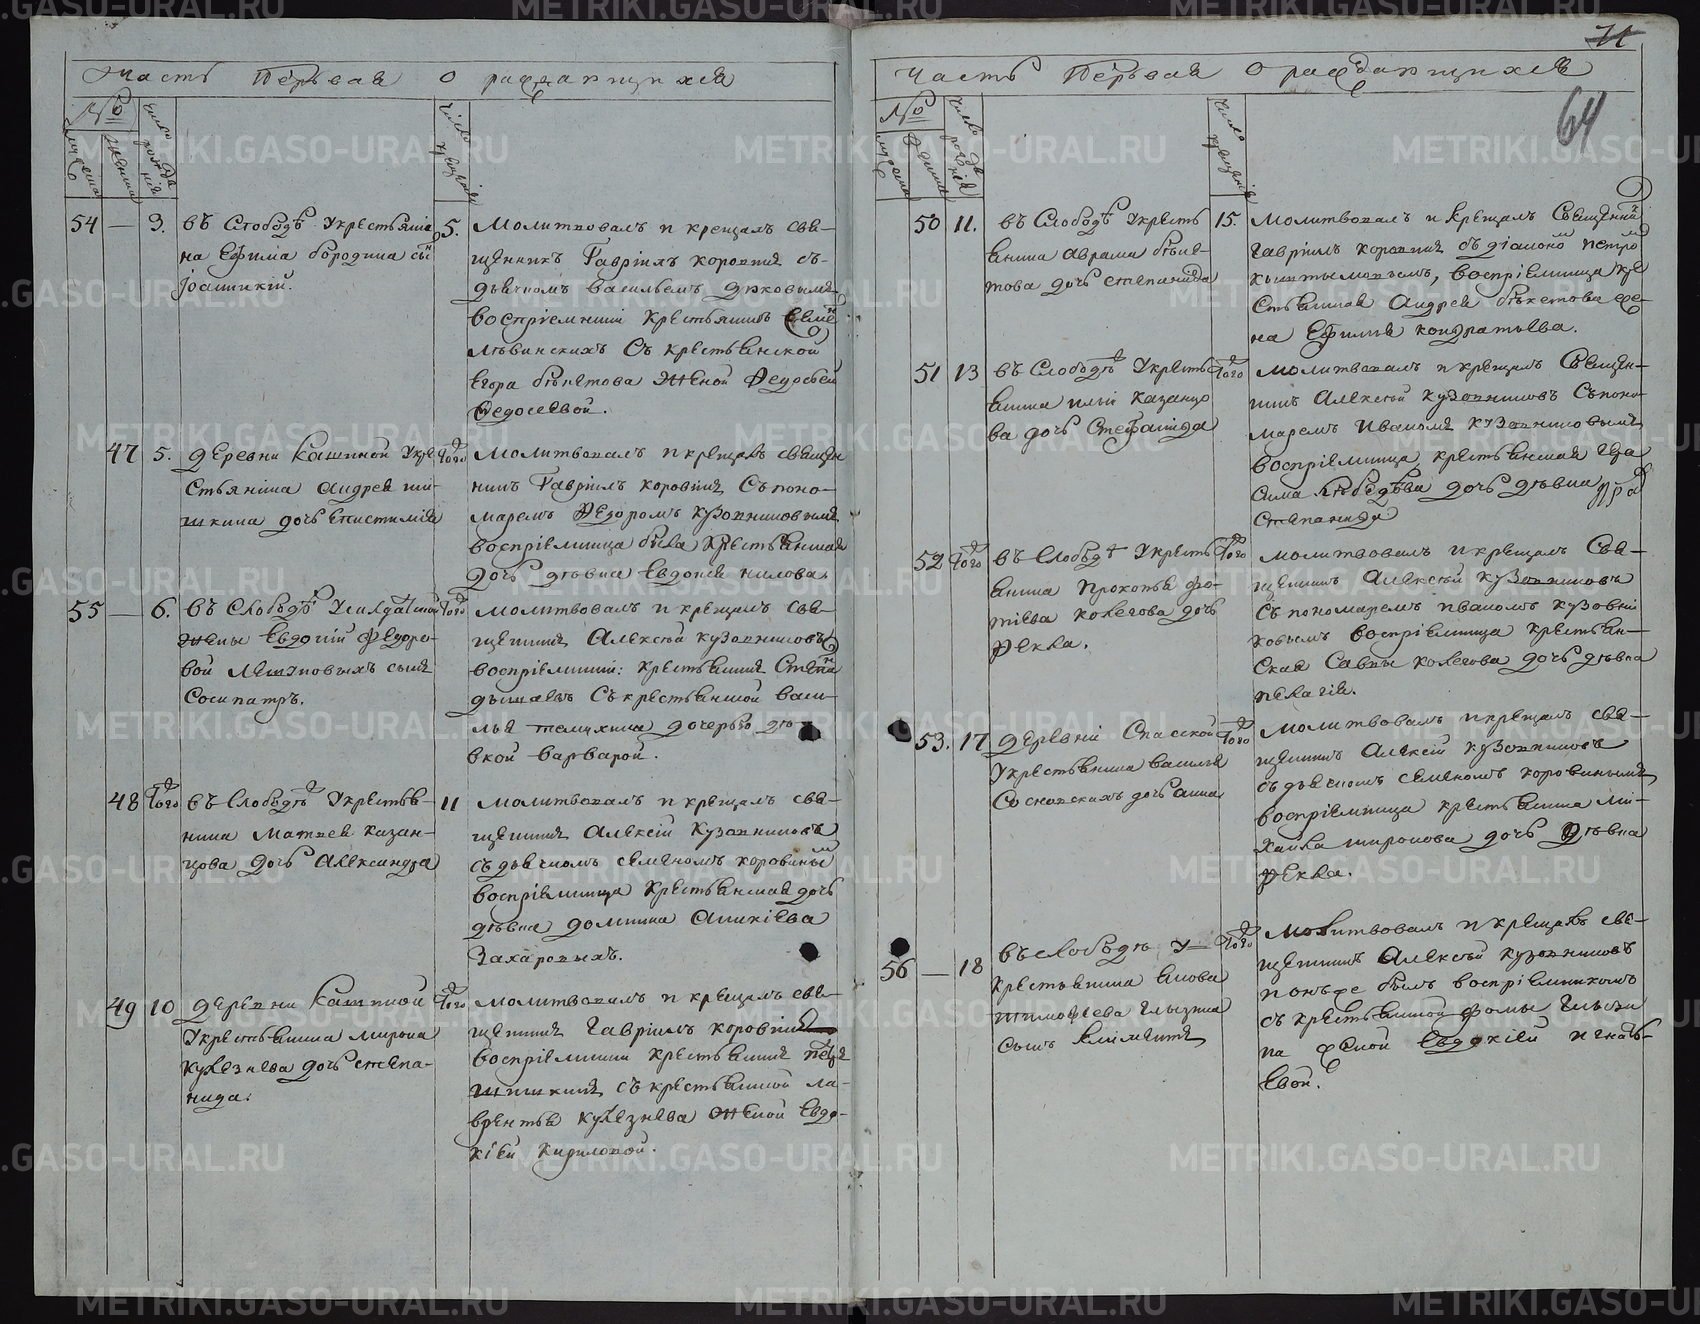 Часть Первая о раждающихся
№
мужеска
женска
число рожденія
число крещенія
54 — 3. въ Слободѣ Укрестьяни
на Ефима бородина сынъ
Іоанникій.
5. Молитвовалъ и крещалъ свя-
щенникъ Гавріилъ коровинъ съ
дьячкомъ василиемъ
восприемники крестьянинъ
съ крестьянской
Егора бѣкетова женой Федосьей
Федосеевой.
47 5. деревни кашиной Укре
Стьянина андрея ши-
шкина дочь епистимія
Того
Молитвовалъ и крещалъ священ
никъ Гавріилъ коровинъ Съ поно-
маремъ Федоромъ кузовниковымъ
воспріемница была Крестьянская
дочь дѣвка Евдокія
55 — 6. въ Слободѣ Усолдатской
жены Евдокіи Федоро-
вой сынъ
Сосипатръ.
Того
Молитвовалъ и крещалъ свя-
щенникъ Алексѣй кузовниковъ
воспріемники: крестьянинъ
Съ крестьянской васи-
лья дочерью дѣ-
вкой варварой.
48 Того въ Слободѣ Укрестья-
нина Матвея казан-
цова дочь Александра
11 Молитвовалъ и крещалъ свя-
щенникъ Алексій Кузовниковъ
съ дьячкомъ семеномъ коровинымъ
воспріемница Крестьянская дочь
дѣвка домника Аникіева
Захаровыхъ.
49 10 деревни Кашиной
Укрестьянина мирона
кулезнева дочь степа-
нида.
Того
Молитвовалъ и крещалъ свя-
щенникъ Гавріилъ коровинъ
воспріемники крестьянинъ петръ
шишкинъ съ крестьянской ла-
врентья кулезнева женой Евдо-
кіей Кириловой.
71
64
Часть Первая о раждающихся
№
мужеска
женска
число рожденія
число крещенія
50 11. въ Слободѣ Укресть
янина аврама бѣке-
това дочь степанида
15. Молитвовалъ и крещалъ Священни
Гавріилъ коровинъ съ діакономъ петромъ
воспріемница кре
Стьянина Андрея бѣкетова же-
на Ефимія кондратьева.
51 13 въ Слободѣ Укресть
янина ильи казанцо
ва дочь Стефанида
Того
Молитвовалъ и крещалъ Священ-
никъ Алексѣй кузовниковъ Съ поно-
маремъ иваномъ кузовниковымъ
воспріемница крестьянская
дочь дѣвка
Степанида
52 Того въ Слободѣ Укресть
янина Прокопья фо-
тіева колегова дочь
Фекла.
Того
Молитвовалъ и крещалъ Свя-
щенникъ Алексѣй кузовниковъ
Съ пономаремъ иваномъ кузовни
ковымъ воспріемница крестьян-
ская Савы колегова дочь дѣвка
пелагія.
53. 17 деревни Спаской
Укрестьянина василья
Сосновскихъ дочь анна
Того
Молитвовалъ и крещалъ свя-
щенникъ Алексій кузовниковъ
съ дьячкомъ семеномъ коровинымъ
воспріемница крестьянина ми-
хаила миронова дочь дѣвка
фекла.
56 — 18 въ слободѣ у
крестьянина якова
тимофеева глызина
сынъ Климентъ
Того
Молитвовалъ и крещалъ свя-
щенникъ Алексѣй кузовниковъ
онъ же былъ воспріемникомъ
съ крестьянской фомы глызи
на женой Евдокіей игнать-
евой.